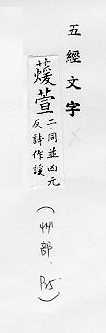 五經文字
蕿萱二同並凶元
反詩作諼
(艸部, P.5)